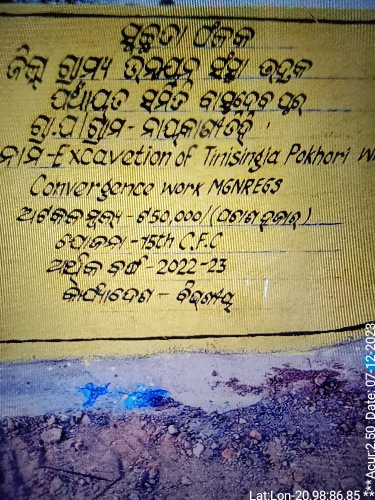 ସ୍ୱଚ୍ଛତା ଫଳକ
ଜିଲ୍ଲା ଗ୍ରାମ୍ୟ ଉନ୍ନୟନ ସଂସ୍ଥା ଭଦ୍ରକ
ପଞ୍ଚାୟତ ସମିତି ବାସୁଦେବପୁର
ଗ୍ରା.ପ/ଗ୍ରାମ-
ନାମ-Excavetion of Tinisingia Pokhori
Convergence work MGNREGS
ଅଟକଳ ମୂଲ୍ୟ - ୫50,000/(ପଚାଶ ହଜାର)
ଯୋଜନା -15th C.F.C
ଆର୍ଥିକ ବର୍ଷ - 2022-23
କାର୍ଯ୍ୟାଦେଶ - ବିଭାଗୀୟ
***Acur:2.50 Date: 07-12-2023
Lat:Lon-20.98:86.85